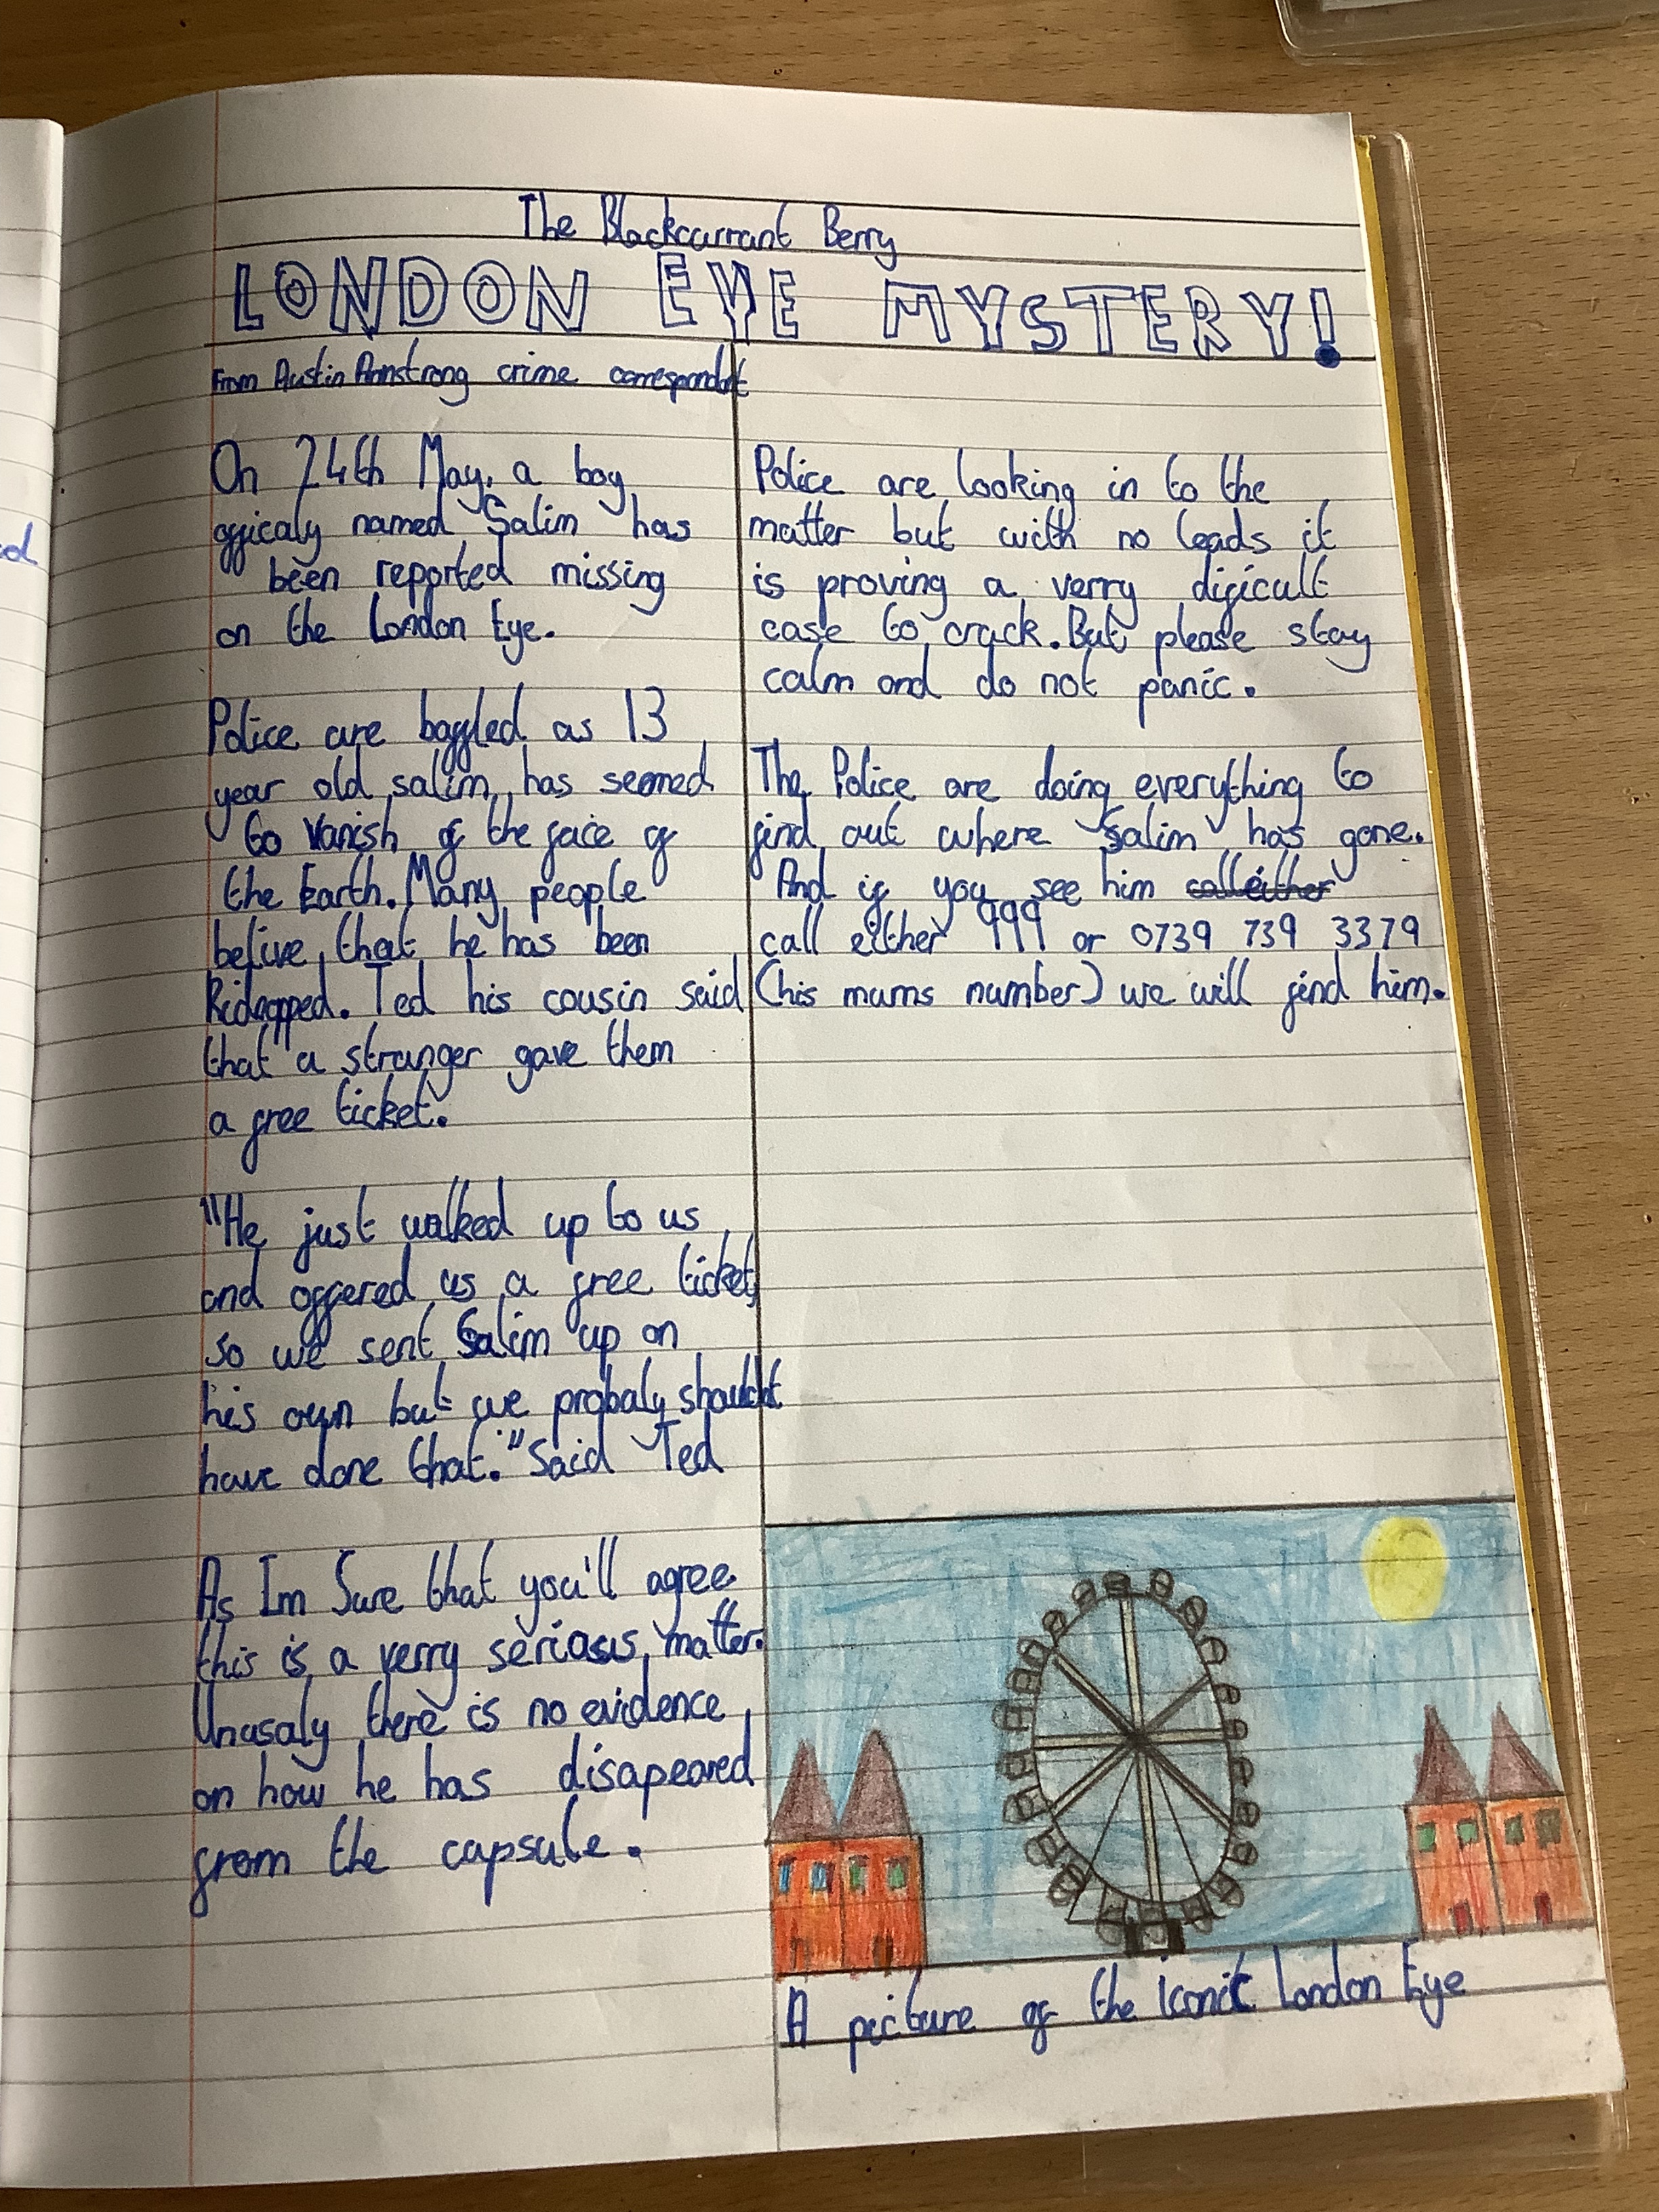 The Blackcurrant Berry
LONDON EYE MYSTERY!
From Austin Armstrong crime correspondent
On 24th May, a boy
officaly named Salim has
been reported missing
on the London Eye.
Police are baffled as 13
year old salim, has seemed
to vanish of the face of
the Earth. Many people
belive, that he has been
Kidnapped. Ted his cousin said
that a stranger gave them
a free ticket.
"He just walked up to us
and offered us a free ticket,
so we sent Salim up on
his own but we probaly shouldnt
have done that." Said Ted
As Im Sure that you'll agree
this is a verry serious matter.
Unusaly there is no evidence
on how he has disapeared
from the capsule.
Police are looking in to the
matter but with no leads it
is proving a verry dificult
case to crack. But please stay
calm and do not panic.
The Police are doing everything to
find out where Salim has gone.
And if you see him call either
call either 999 or 0739 739 3379
(his mums number) we will find him.
A picture of the iconic London Eye